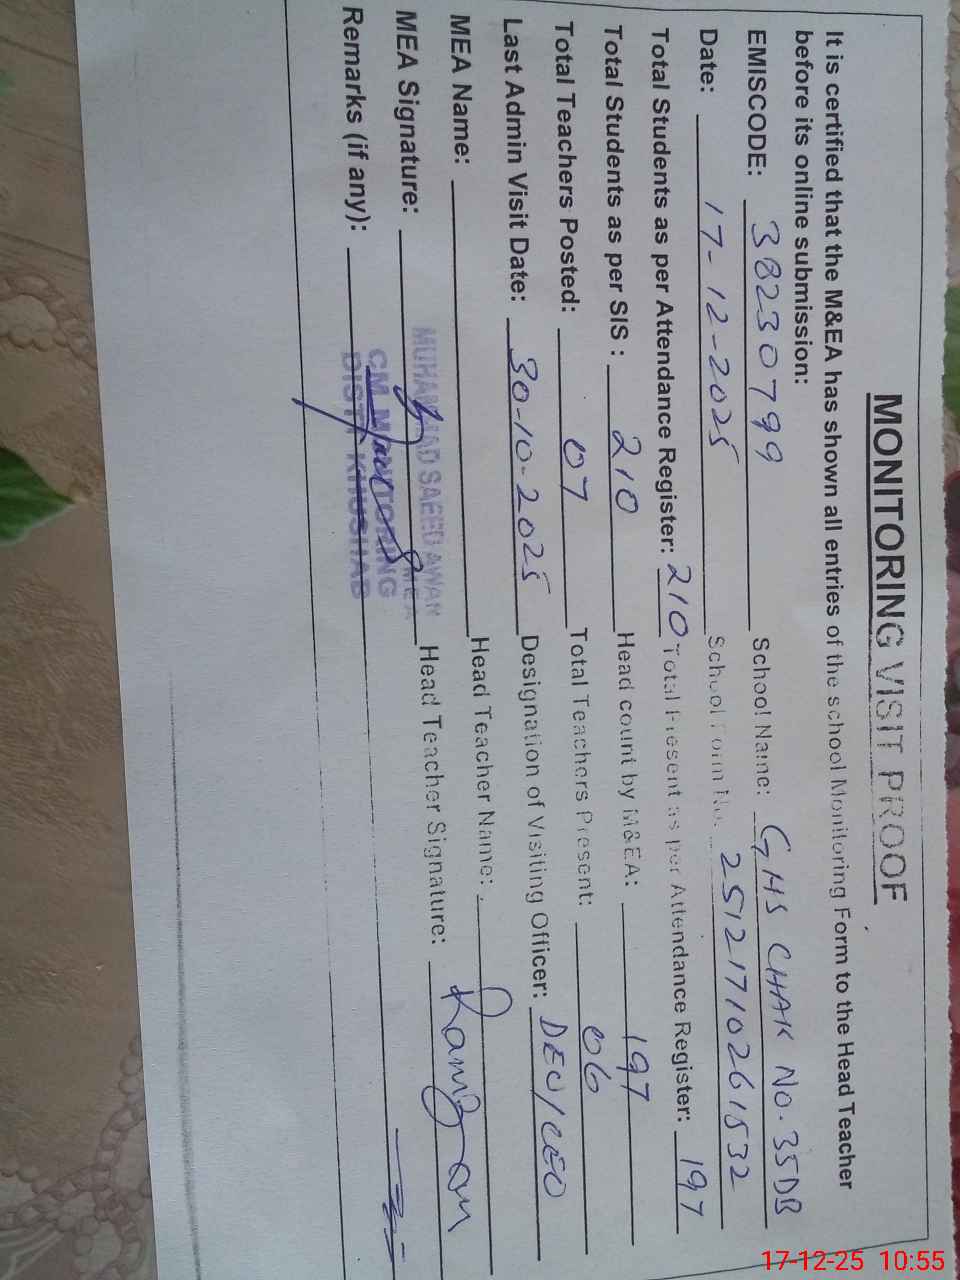 MONITORING VISIT PROOF
It is certified that the M&EA has shown all entries of the school Monitoring Form to the Head Teacher
before its online submission:
EMISCODE: 38230799 School Name: GHS CHAK NO. 35DB
Date: 17-12-2025 School Form No. 25121710261532
Total Students as per Attendance Register: 210 Total Present as per Attendance Register: 197
Total Students as per SIS : 210 Head count by M&EA: 197
Total Teachers Posted: 07 Total Teachers Present: 06
Last Admin Visit Date: 30-10-2025 Designation of Visiting Officer: DEO/CEO
MEA Name: Head Teacher Name:
MUHAMMAD SAEED AWAN
MEA Signature: MEA Head Teacher Signature:
CM MONITORING
Remarks (if any): DISTT KHUSHAB
17-12-25 10:55